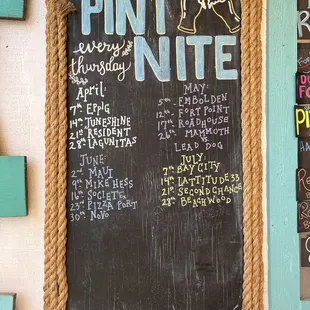 PINT
every
thursday
NITE
April:
7th EPPIG
14th JUNESHINE
21st RESIDENT
28th LAGUNITAS
MAY:
5th - EMBOLDEN
12th - FORT POINT
17th ROADHOUSE
26th MAMMOTH
VS
LEAD DOG
JUNE:
2nd MAUI
9th MIKE HESS
16th SOCIETE
23rd PIZZA PORT
30th NOVO
JULY:
7th BAY CITY
14th LATTITUDE 33
21st SECOND CHANCE
28th BEACHWOOD